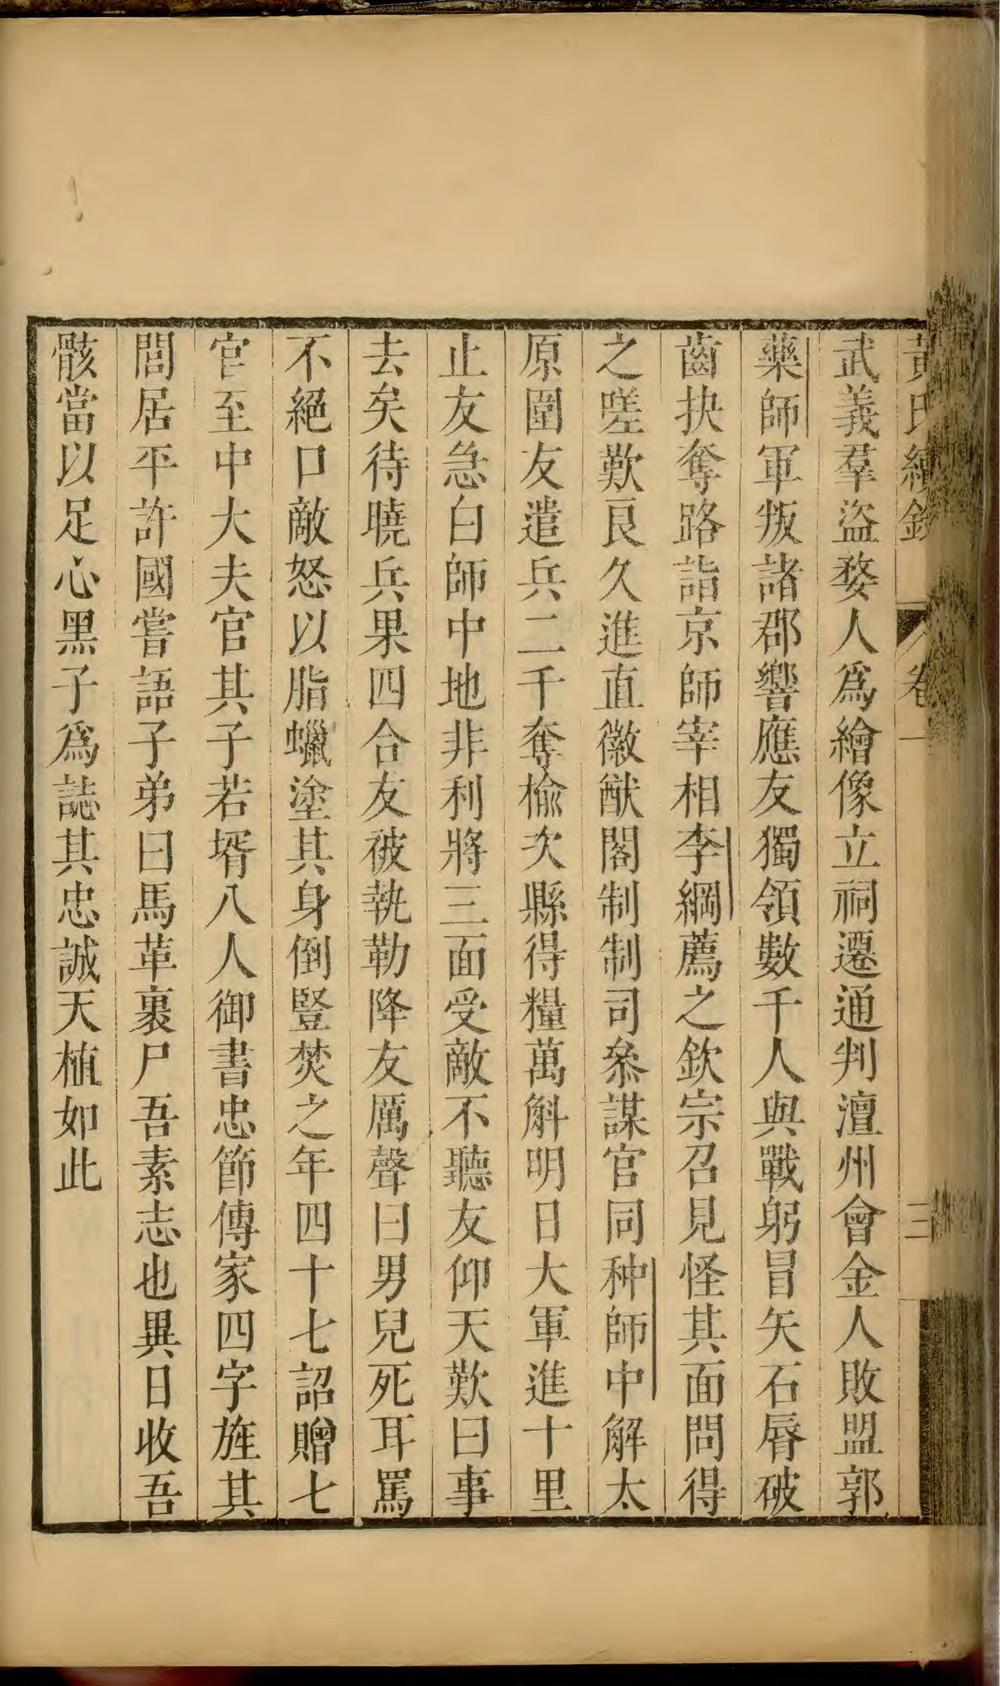 黃氏續錄 卷一 三
武義羣盜婺人爲繪像立祠遷通判澶州會金人敗盟郭
藥師軍叛諸郡響應友獨領數千人與戰躬冒矢石脣破
齒抉奪路詣京師宰相李綱薦之欽宗召見怪其面問得
之嗟歎良久進直徽猷閣制制司叅謀官同种師中解太
原圍友遣兵二千奪榆次縣得糧萬斛明日大軍進十里
止友急白師中地非利將三面受敵不聽友仰天歎曰事
去矣待曉兵果四合友被執勒降友厲聲曰男兒死耳罵
不絕口敵怒以脂蠟塗其身倒豎焚之年四十七詔贈七
官至中大夫官其子若壻八人御書忠節傳家四字旌其
閭居平許國嘗語子弟曰馬革裹尸吾素志也異日收吾
骸當以足心黑子爲誌其忠誠天植如此